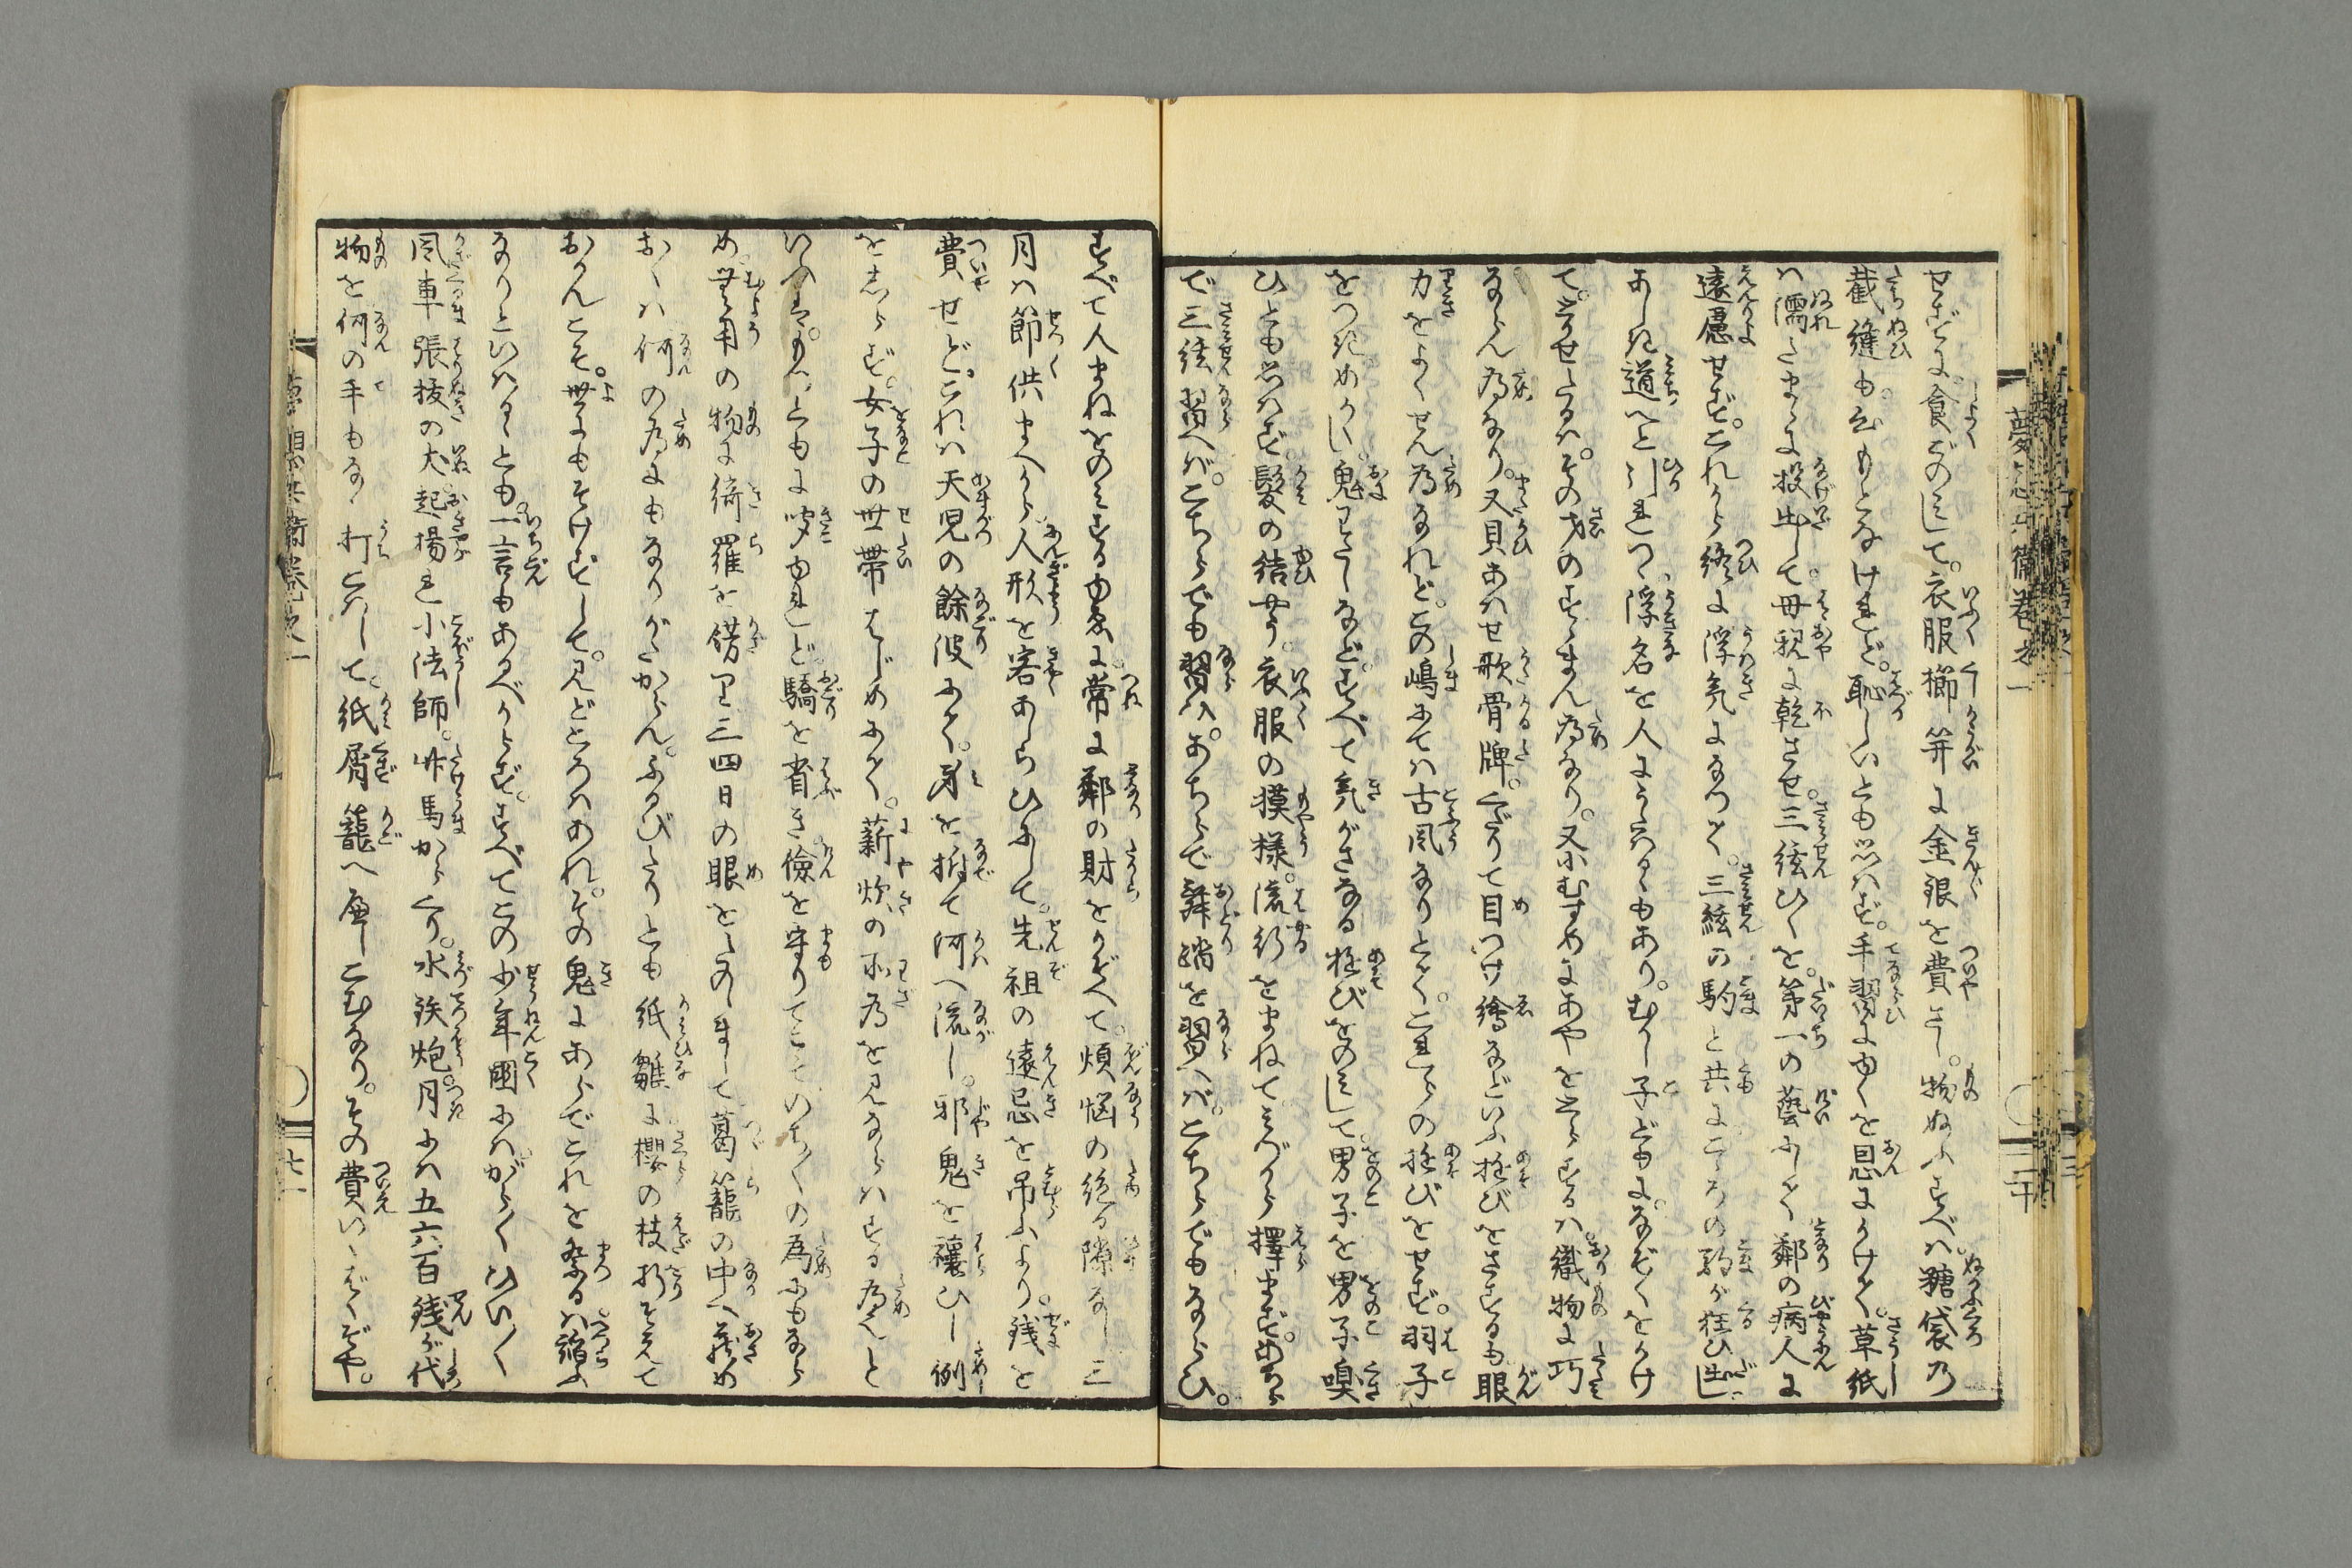 せずに食ごのみして。衣服櫛笄に金銀を費し。物ぬふすべハ。糠袋乃
截縫も。心もとなけれど。恥しいとも思ハず。手習にゆくを恩にかけて。草紙
ハ濡たまゝに投出して。母親に乾させ。三絃ひくを。第一の藝にして。鄰の病人に
遠慮せず。これから終に浮気になつて。三絃の駒と共にこゝろの駒が狂ひ出し
あしき道へと引れつゝ。浮名を人にうたはるゝもあり。むかし子どもに。なぞ〳〵をかけ
て。とかせたるハ。その才のすゝまん為なり。又小むすめにあやをとらするハ。織物に巧
ならん為なり。又貝あハせ歌骨牌。くだりて目つけ繪などいふ遊びをさするも眼
力をよくせん為なれど。この嶋にてハ古風なりとて。これらの遊びをせず。羽子
をつきめかい。鬼わたしなど。すべて気がさなる遊びをのみして。男子を男子嗅
ひとも思ハず。髪の結やう。衣服の摸様。流行をまねてみぐるし擇まず。あちら
で三絃習へバ。こちらでも習ハ。あちらで舞踊を習へバ。こちらでもならひ。
すべて人まねをのミする由ゑに。常に鄰の財をかぞへて。煩悩の絶る隙なし三
月ハ節供まへから人形を客あしらひにして。先祖の遠忌を吊ふより。銭を
費せど。これハ天児の餘波にて。身を撫て河へ流し。邪鬼を禳ひし例
をしらず。女子の世帯はじめにて。薪炊の所為を見ならハする為と
いへば。もつともに聞ゆれど。驕を省き儉を守りてこそいさゝの為にもなら
め。無用の物に綺羅を錺り三四日の眼をたのしまして葛籠の中へ蔵め
おくハ何の為にもなりがたからん。ふるびたりとも紙雛に櫻の枝折そえて
おかんこそ。世にもそけずして。見どころハあれ。その鬼にあらでこれを祭るハ諂ふ
なりといハるゝとも。一言もあるべからず。すべてこの少年國にハ。がら〳〵ひい〳〵
風車張抜の犬。起揚り小法師。竹馬から〳〵。水鉄炮。月にハ五六百銭が代
物を何の手もなく打こハして。紙屑籠へ押こむなり。その費いくばくぞや。
夢想兵衛巻之一
三
二十
夢想兵衛巻之一
七一